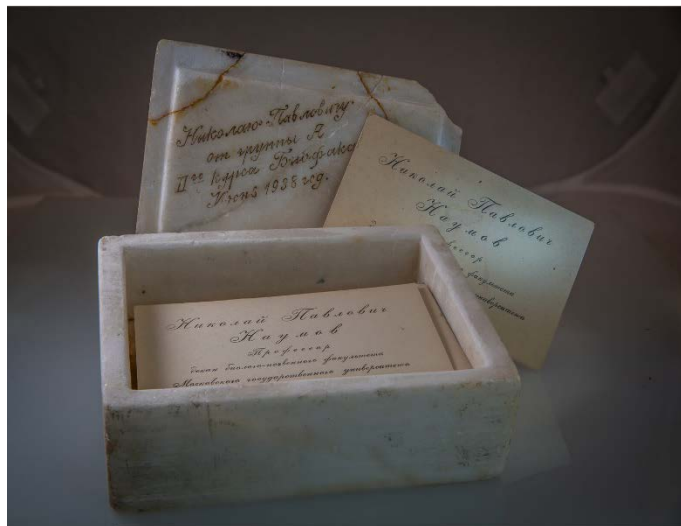 Николаю Павловичу
от группы А
IIго курса Биофака
Июнь 1938 год.
Николай Павлович
Наумов
Профессор
факультета
университета
Николай Павлович
Наумов
Профессор
декан биолого-почвенного факультета
Московского государственного университета